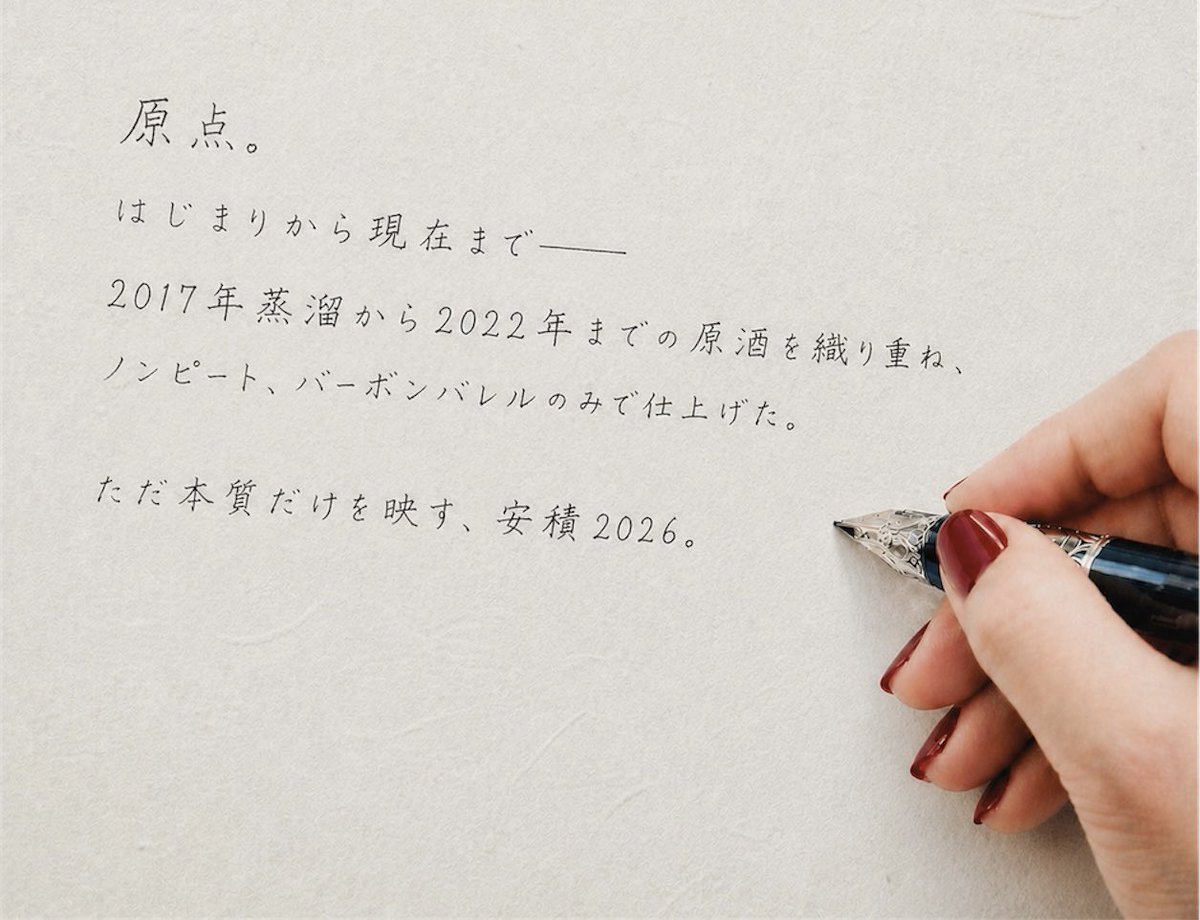 原点。
はじまりから現在まで――
2017年蒸溜から2022年までの原酒を織り重ね、
ノンピート、バーボンバレルのみで仕上げた。
ただ本質だけを映す、安積2026。